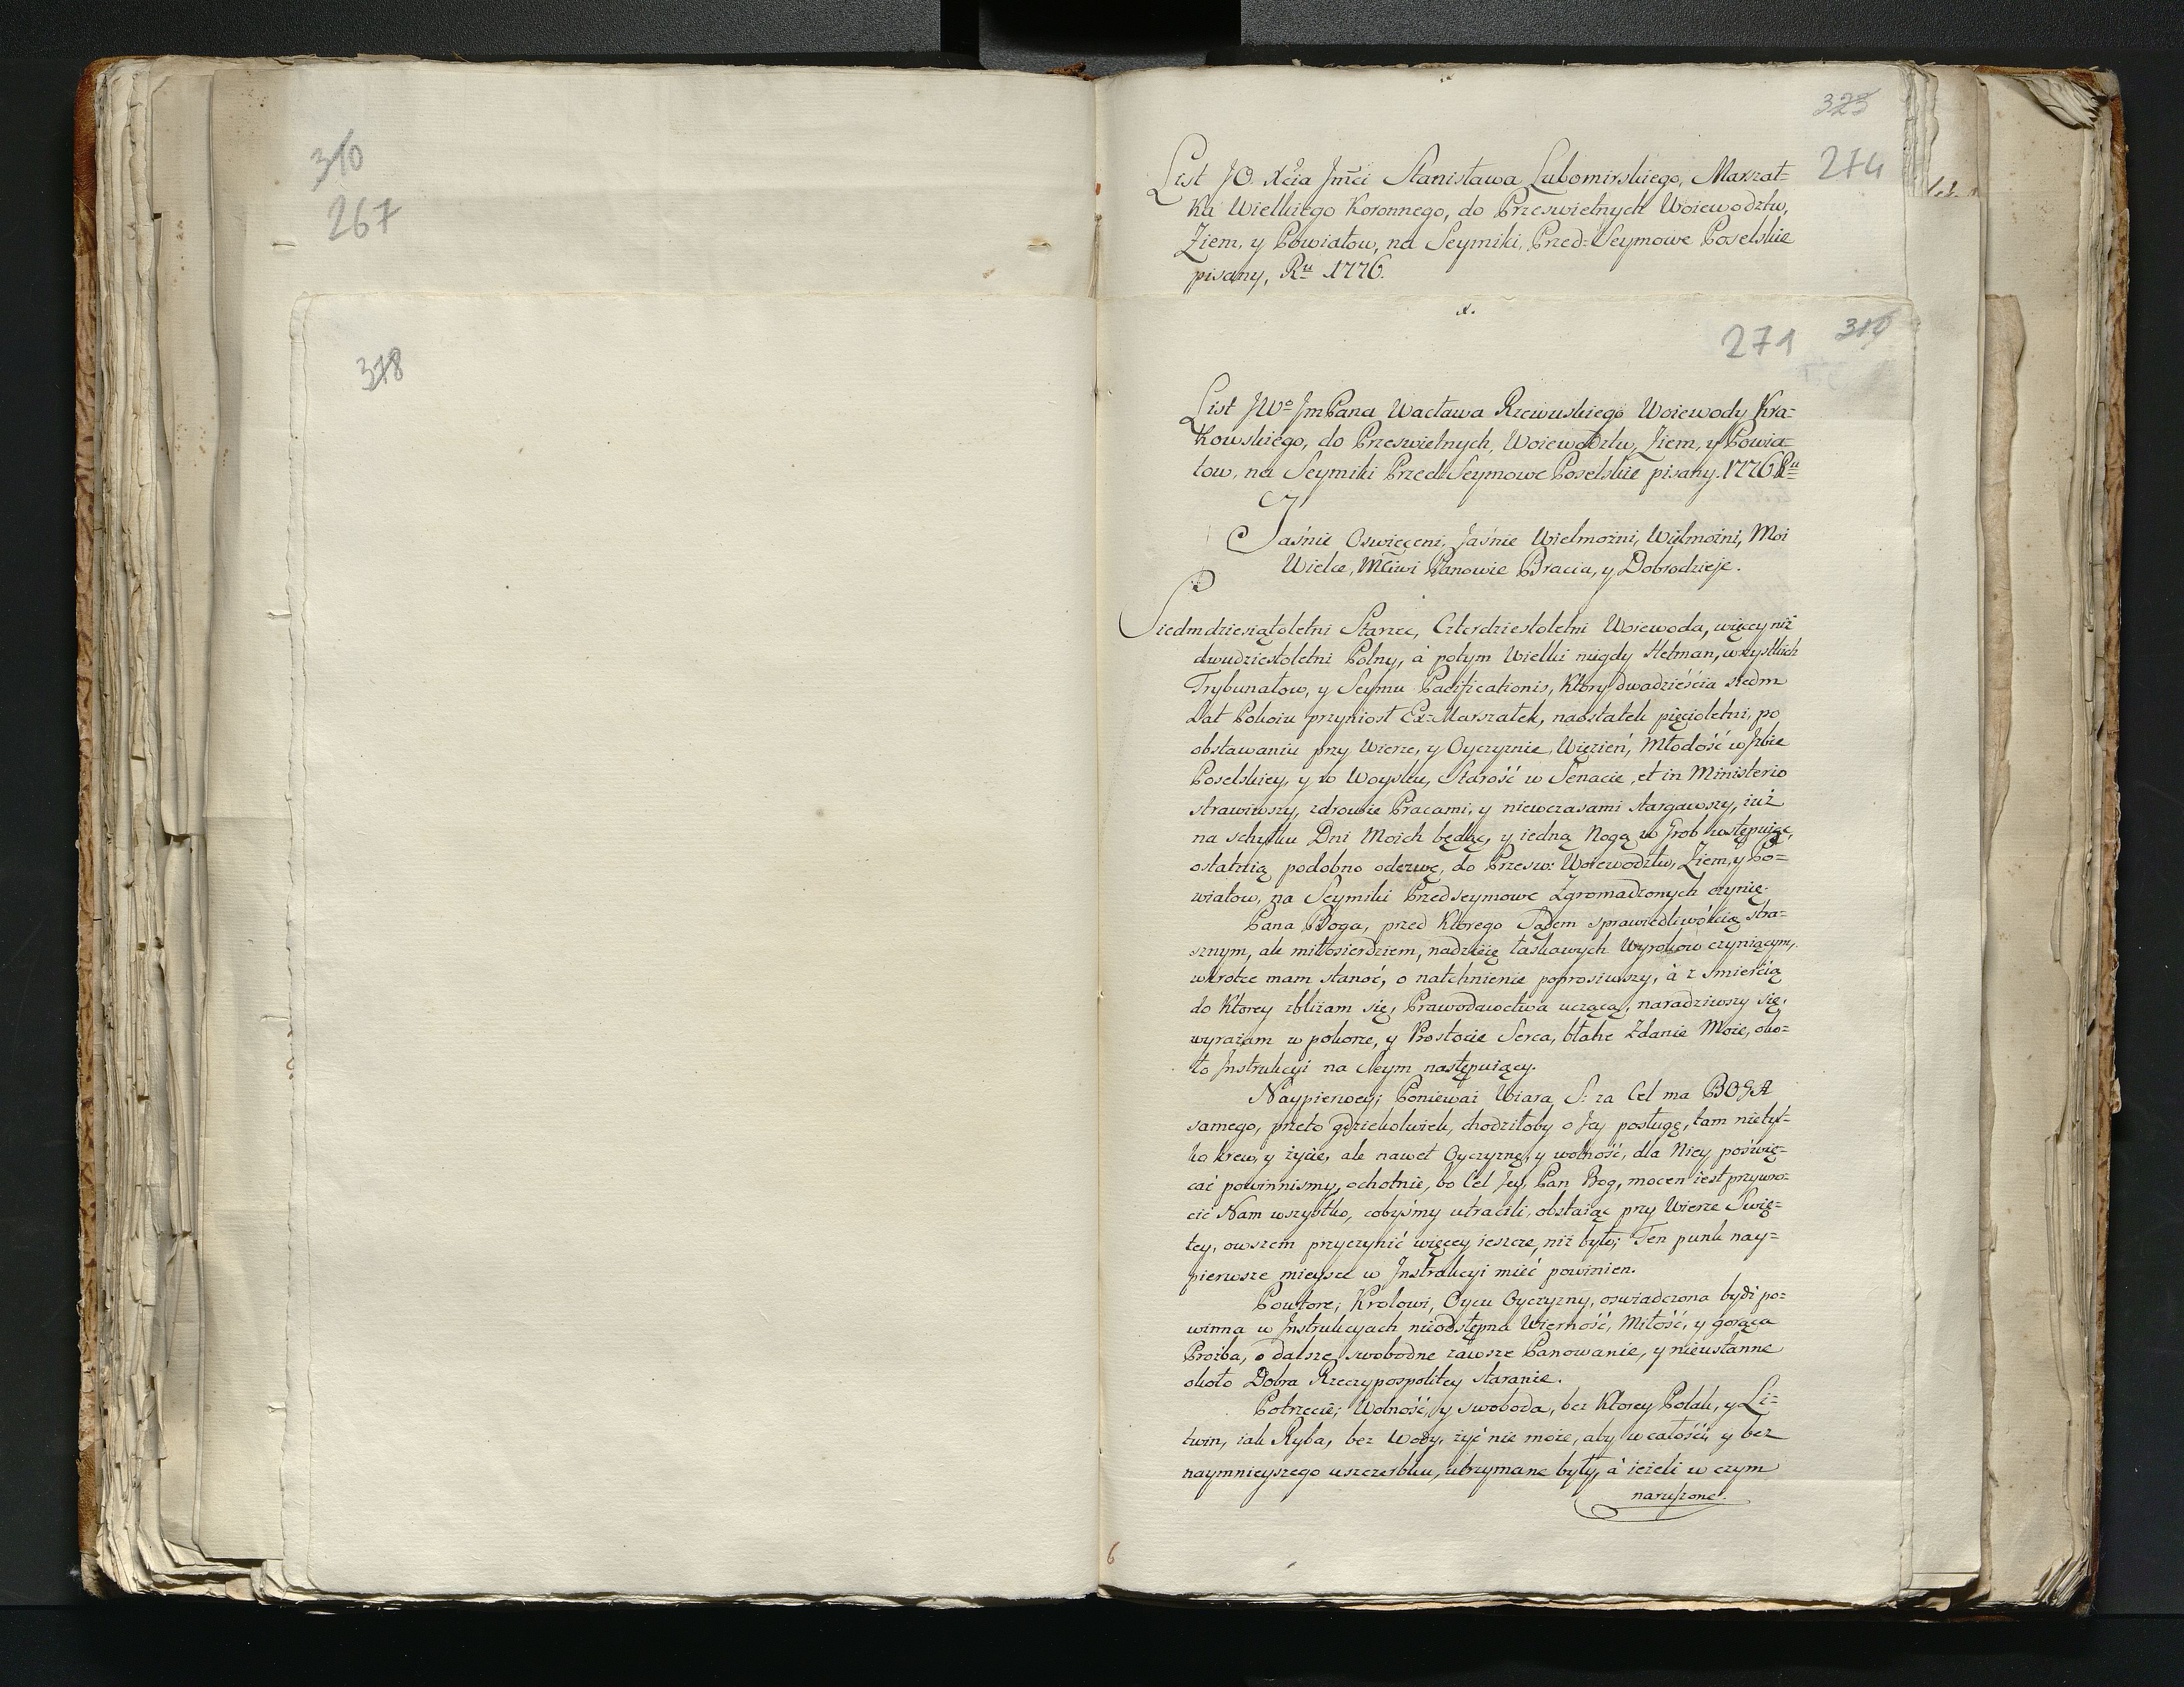 310
267
318
323
274
List JO. Xcia Jmći Stanisława Lubomirskiego, Marszał=
ka Wielkiego Koronnego, do Prześwietnych Woiewodztw,
Ziem, y Powiatow, na Seymiki, Przed=Seymowe Poselskie
pisany, Ru 1776.
271
List JWo JmPana Wacława Rzewuskiego Woiewody Kra=
kowskiego, do Prześwietnych, Woiewodztw, Ziem, y Powia=
tow, na Seymiki Przed Seymowe Poselskie pisany. 1776 Ru
Jaśnie Oswięceni, Jaśnie Wielmożni, Wielmożni, Moi
Wielce, Mciwi Panowie Bracia, y Dobrodzieje.
Siedmdziesiątoletni Starzec, Czterdziestoletni Woiewoda, więcey niż
dwudziestoletni Polny, à potym Wielki niegdy Hetman, wszystkich
Trybunałow, y Seymu Pacificationis, Ktory dwadzieścia siedm
Lat Pokoiu przyniosł Ex=Marszałek, naostatek pięcioletni, po
obstawaniu przy Wierze, y Oyczyznie, Więzień, Młodość w Jzbie
Poselskiey, y w Woysku, Starość w Senacie, et in Ministerio
strawiwszy, zdrowie Pracami, y niewczasami stargawszy, iuż
na schyłku Dni Moich będąc, y iedną Nogą w Grob wstępuiąc,
ostatnią podobno odezwę, do Przesw: Woiewodztw, Ziem, y Po=
wiatow, na Seymiki Przedseymowe Zgromadzonych czynię.
Pana Boga, przed Ktorego Sądem sprawiedliwością stra=
sznym, ale miłosierdziem, nadzieię łaskawych Wyrokow czyniącym,
wkrotce mam stanoć, o natchnienie poprosiwszy, à z śmiercią
do Ktorey zbliżam się, Prawodawctwa uczącą, naradziwszy się,
wyrażam w pokorze, y Prostocie Serca, błahe Zdanie Moie, oko=
ło Jnstrukcyi na Seym następuiący.
Naypierwey; Ponieważ Wiara S: za Cel ma BOGA
samego, przeto gdziekolwiek, chodziłoby o Jey posługę, tam nietyl=
ko krew, y życie, ale nawet Oyczyznę, y wolność, dla Niey poswię=
cać powinnismy, ochotnie, bo Cel Jey, Pan Bog, mocen iest przywro=
cić Nam wszystko, cobyśmy utracili, obstaiąc przy Wierze Swię=
tey, owszem przyczynić więcey ieszcze, niż było; Ten punk nay=
pierwsze mieysce w Jnstrukcyi mieć powinien.
Powtore; Krolowi, Oycu Oyczyzny, oswiadczona bydź po=
winna w Jnstrukcyach nieodstępna Wierność, Miłość, y gorąca
Proźba, o dalsze swobodne zawsze Panowanie, y nieustanne
około Dobra Rzeczypospolitey staranie.
Potrzecie; Wolność, y swoboda, bez Ktorey Polak, y Li=
twin, iak Ryba, bez Wody, żyć nie może, aby w całości, y bez
naymnieyszego uszczerbku, utrzymane były, à ieżeli w czym
naruszone.
6